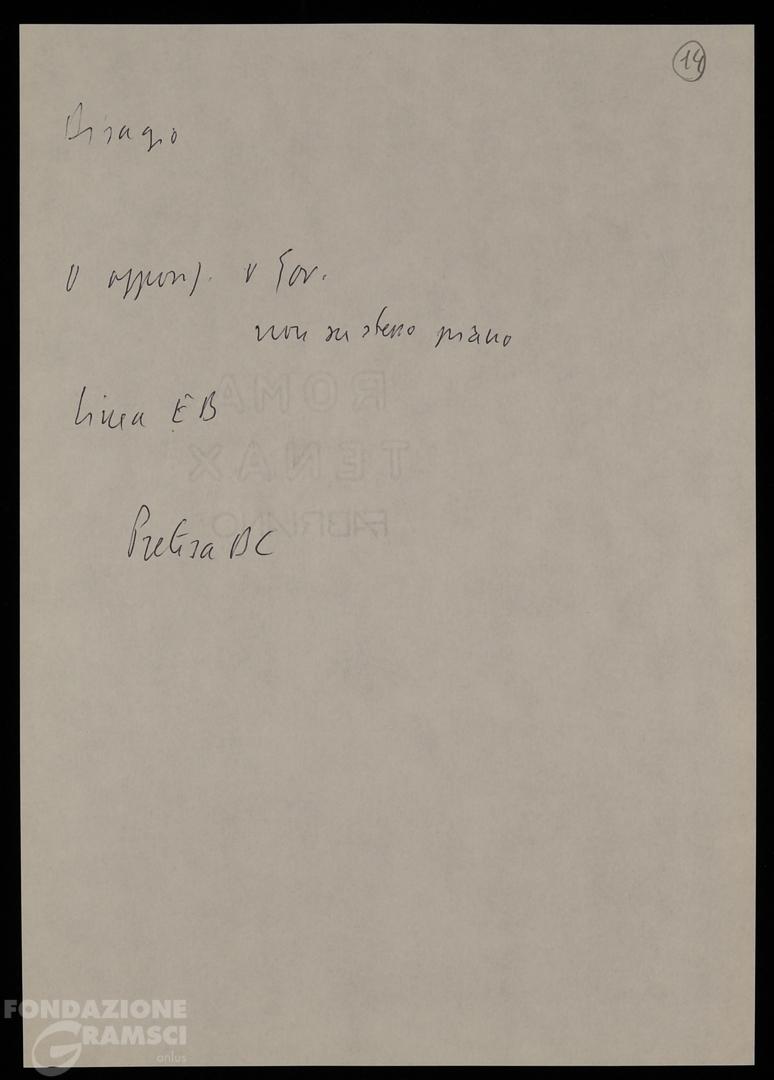 14
Disagio
o opposiz. o Gov.
non su stesso piano
linea EB
Pretesa DC
ROMA
TENAX
FABRIANO
FONDAZIONE
GRAMSCI
onlus